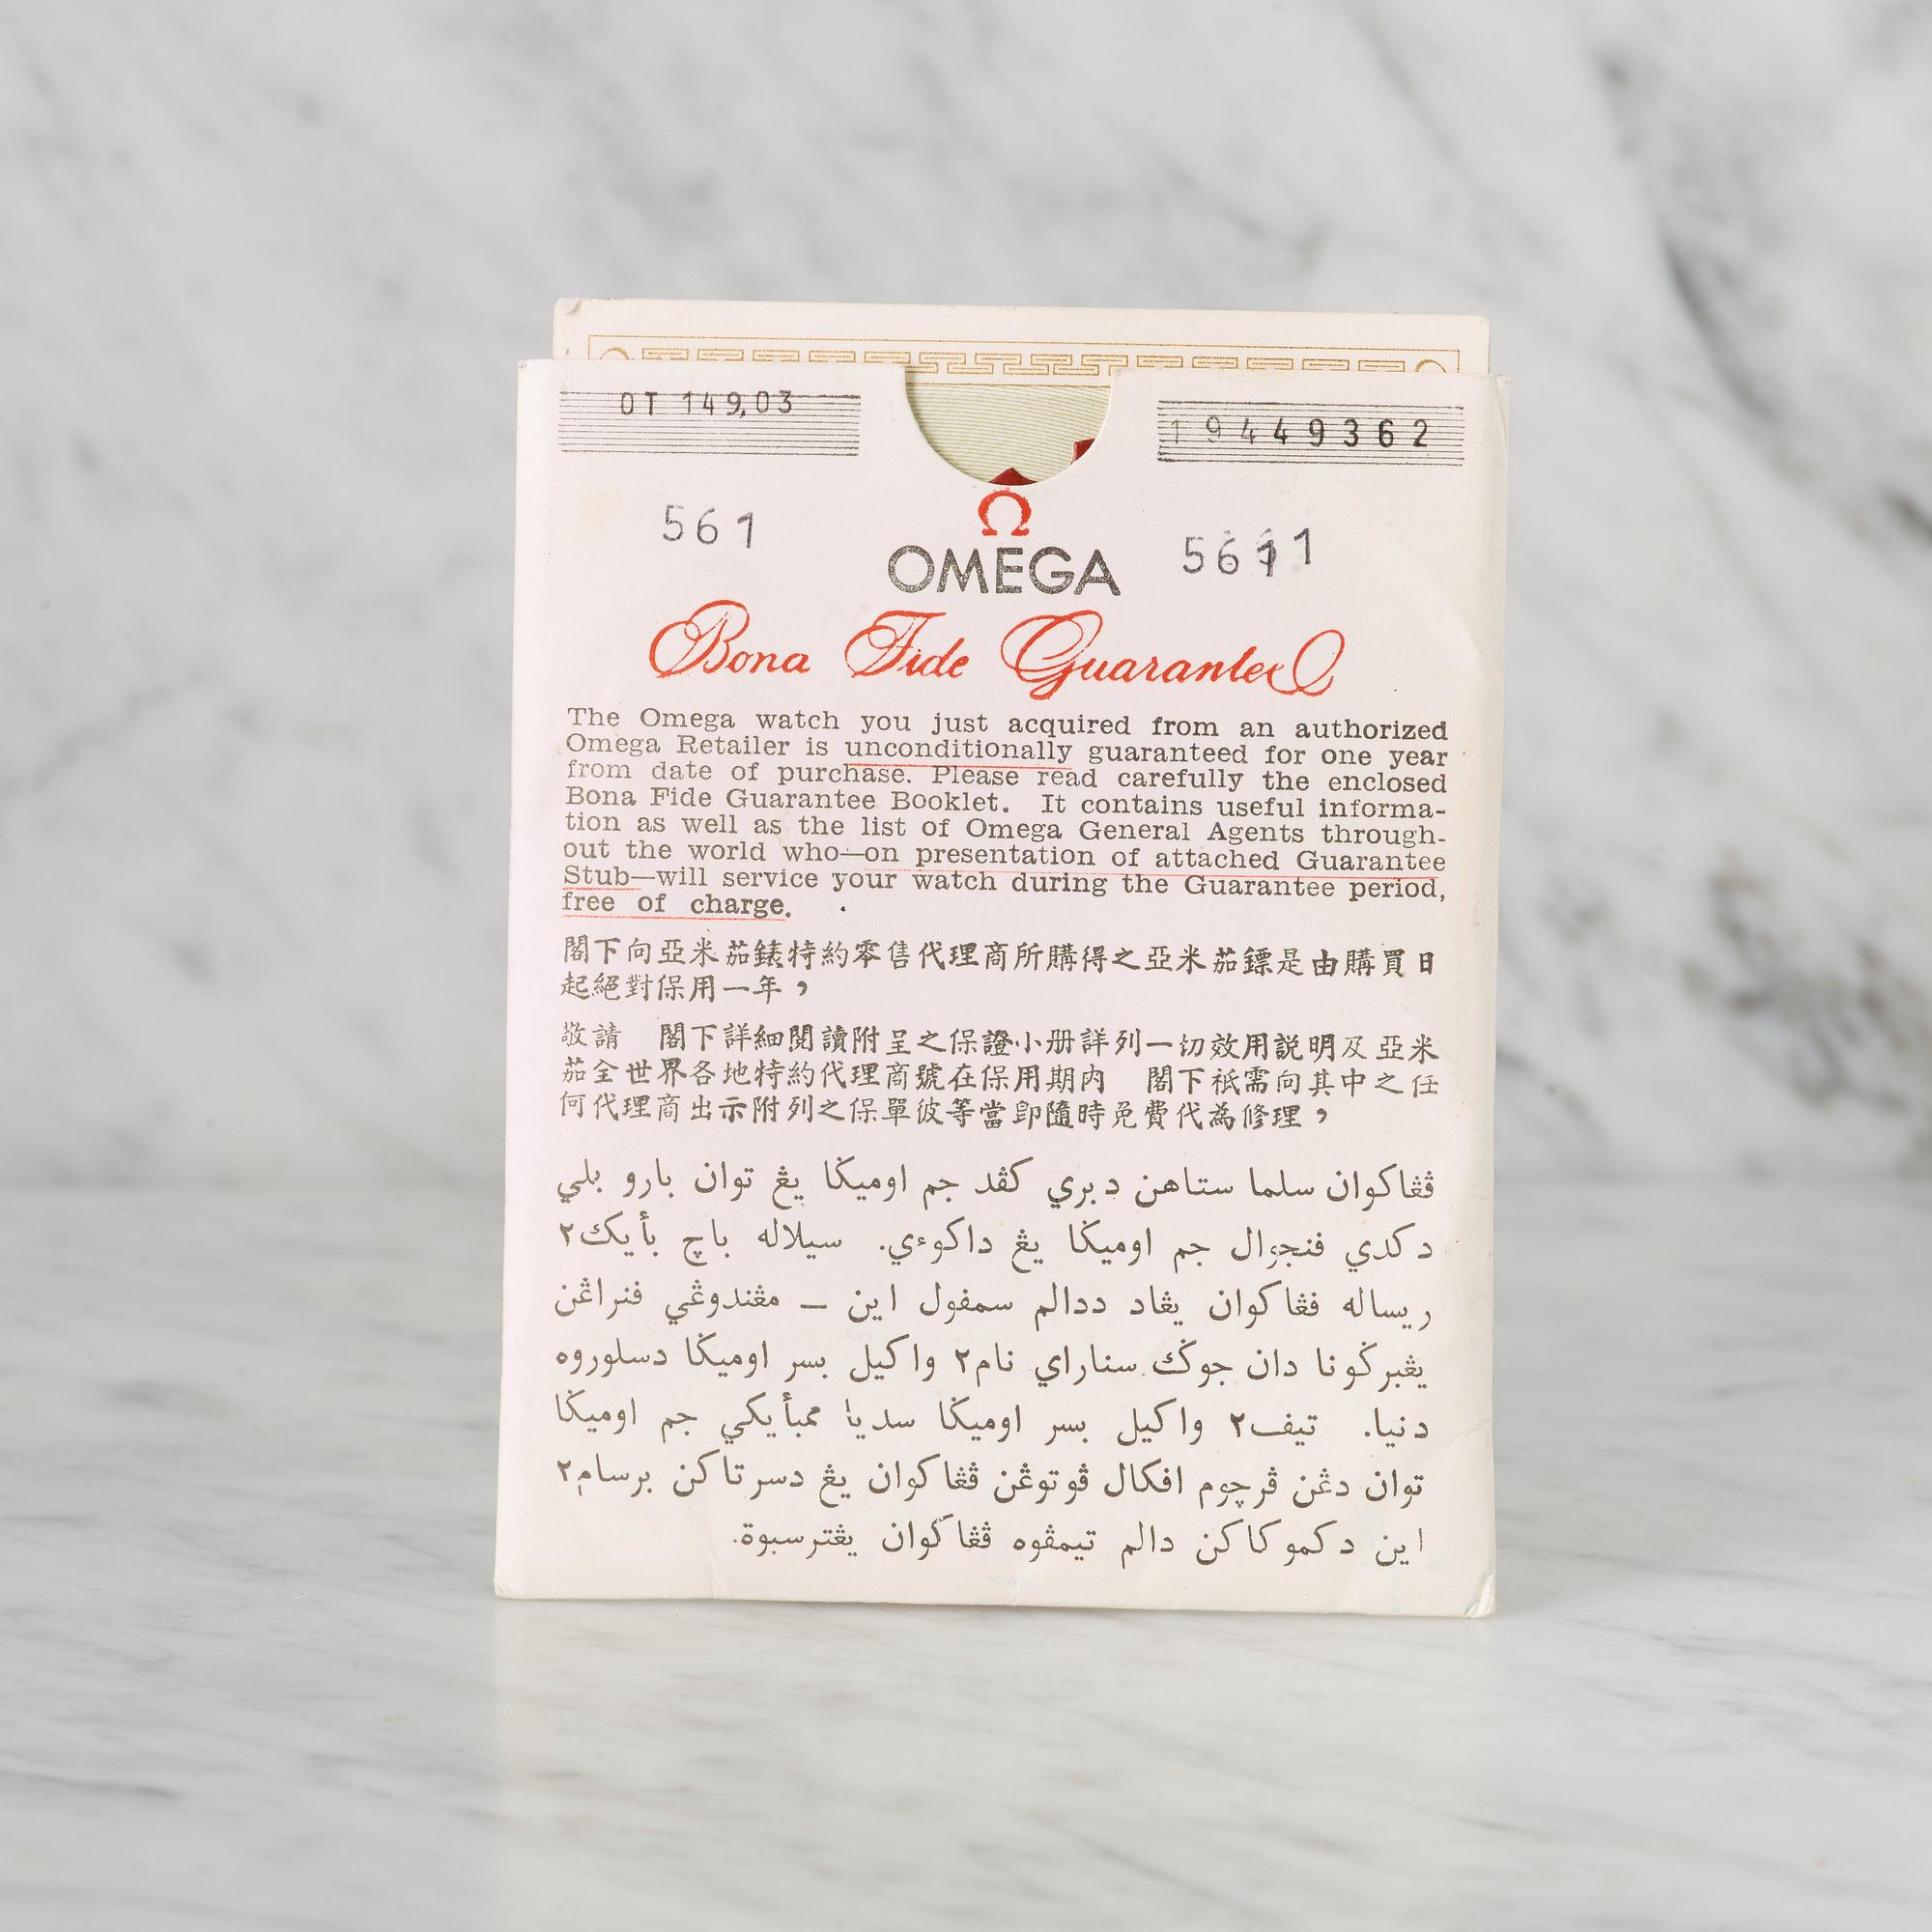 OT 149,03
19449362
561
Ω
OMEGA
5611
Bona Fide Guarantee
The Omega watch you just acquired from an authorized
Omega Retailer is unconditionally guaranteed for one year
from date of purchase. Please read carefully the enclosed
Bona Fide Guarantee Booklet. It contains useful informa-
tion as well as the list of Omega General Agents through-
out the world who—on presentation of attached Guarantee
Stub—will service your watch during the Guarantee period,
free of charge.
閣下向亞米茄錶特約零售代理商所購得之亞米茄鏢是由購買日
起絕對保用一年，
敬請　閣下詳細閱讀附呈之保證小册詳列一切效用説明及亞米
茄全世界各地特約代理商號在保用期内　閣下祇需向其中之任
何代理商出示附列之保單彼等當卽隨時免費代為修理，
ڤڠاكوان سلما ستاهن دبري كڤد جم اوميݢا يڠ توان بارو بلي
دكدي فنجوال جم اوميݢا يڠ داكوءي. سيلاله باچ بأيك٢
ريساله فڠاكوان يڠاد ددالم سمفول اين — مڠندوڠي فنراڠن
يڠبرݢونا دان جوݢك سناراي نام٢ واكيل بسر اوميݢا دسلوروه
دنيا. تيف٢ واكيل بسر اوميݢا سديا ممبأيكي جم اوميݢا
توان دڠن ڤرچوم افكال ڤوتوڠن ڤڠاكوان يڠ دسرتاكن برسام٢
اين دكموكاكن دالم تيمڤوه ڤڠاكوان يڠترسبوة.